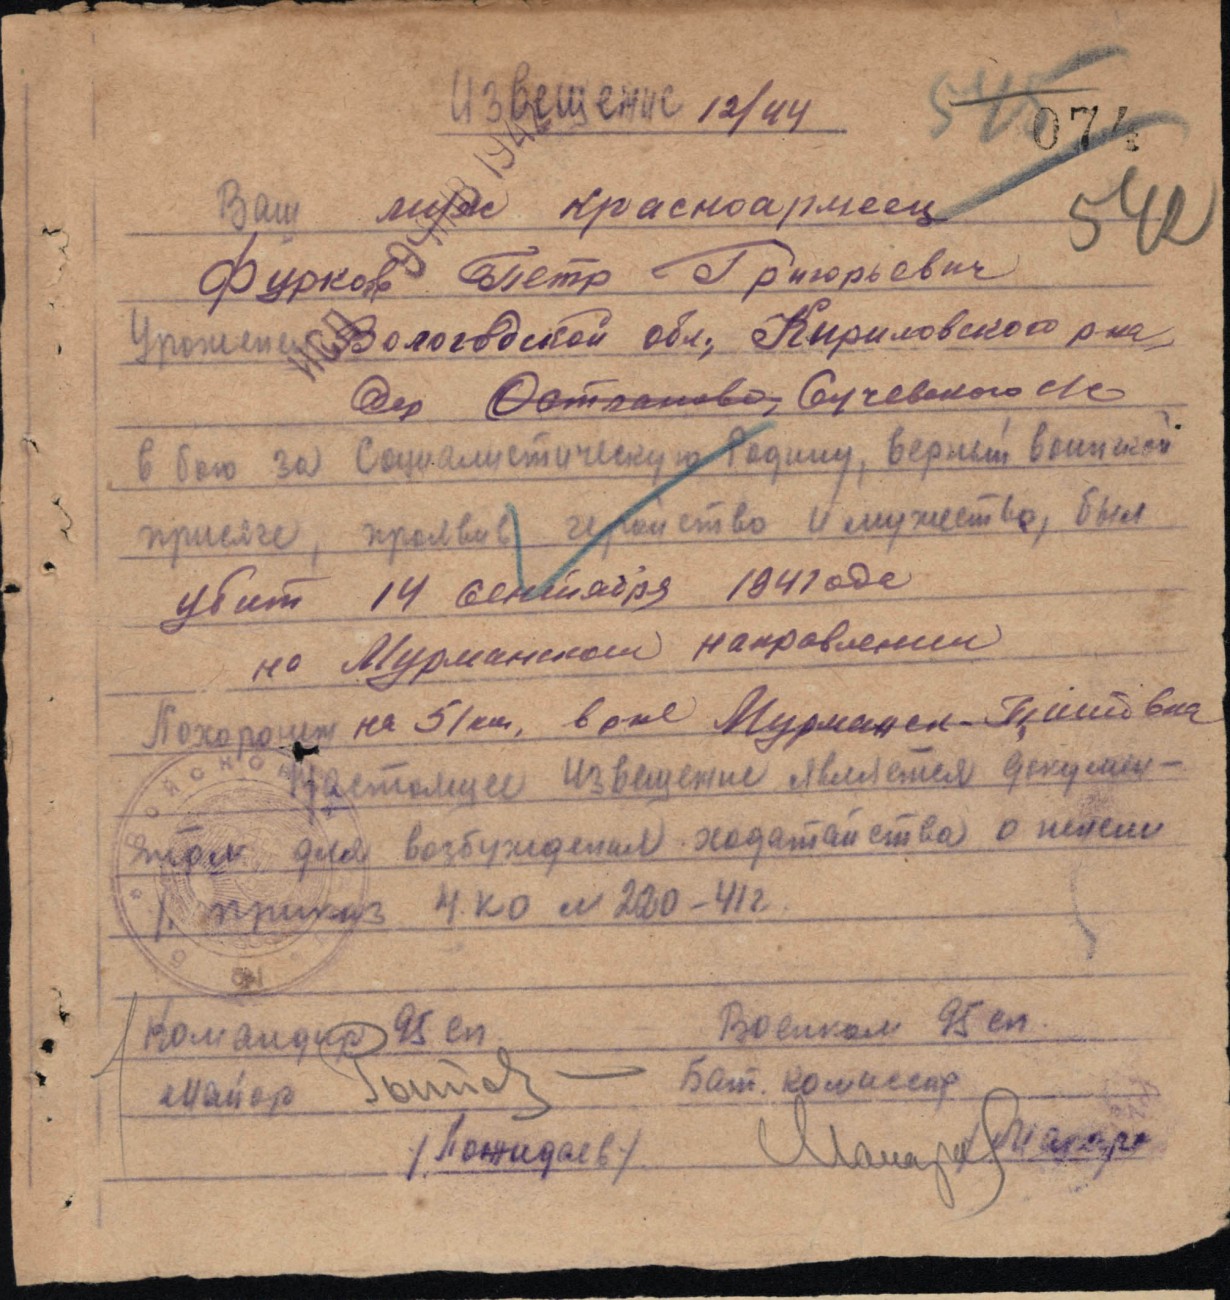 Извещение 12/44
545
074
542
Ваш муж красноармеец
Фурков Петр Григорьевич
Уроженец Вологодской обл., Кириловского р на,
дер Остланово, Сучевского с/с
в бою за Социалистическую Родину, верный воинской
присяге, проявив геройство и мужество, был
убит 14 сентября 1941 года
на Мурманском направлении
Похоронен на 51 км, в р не Мурманск-Титовка
Настоящее извещение является докумен-
том для возбуждения ходатайства о пенсии
/. приказ НКО N 220-41 г.
Командир 95 сп Военком 95 сп.
Майор Бат. комиссар
/Пожидаев/ /Макаро